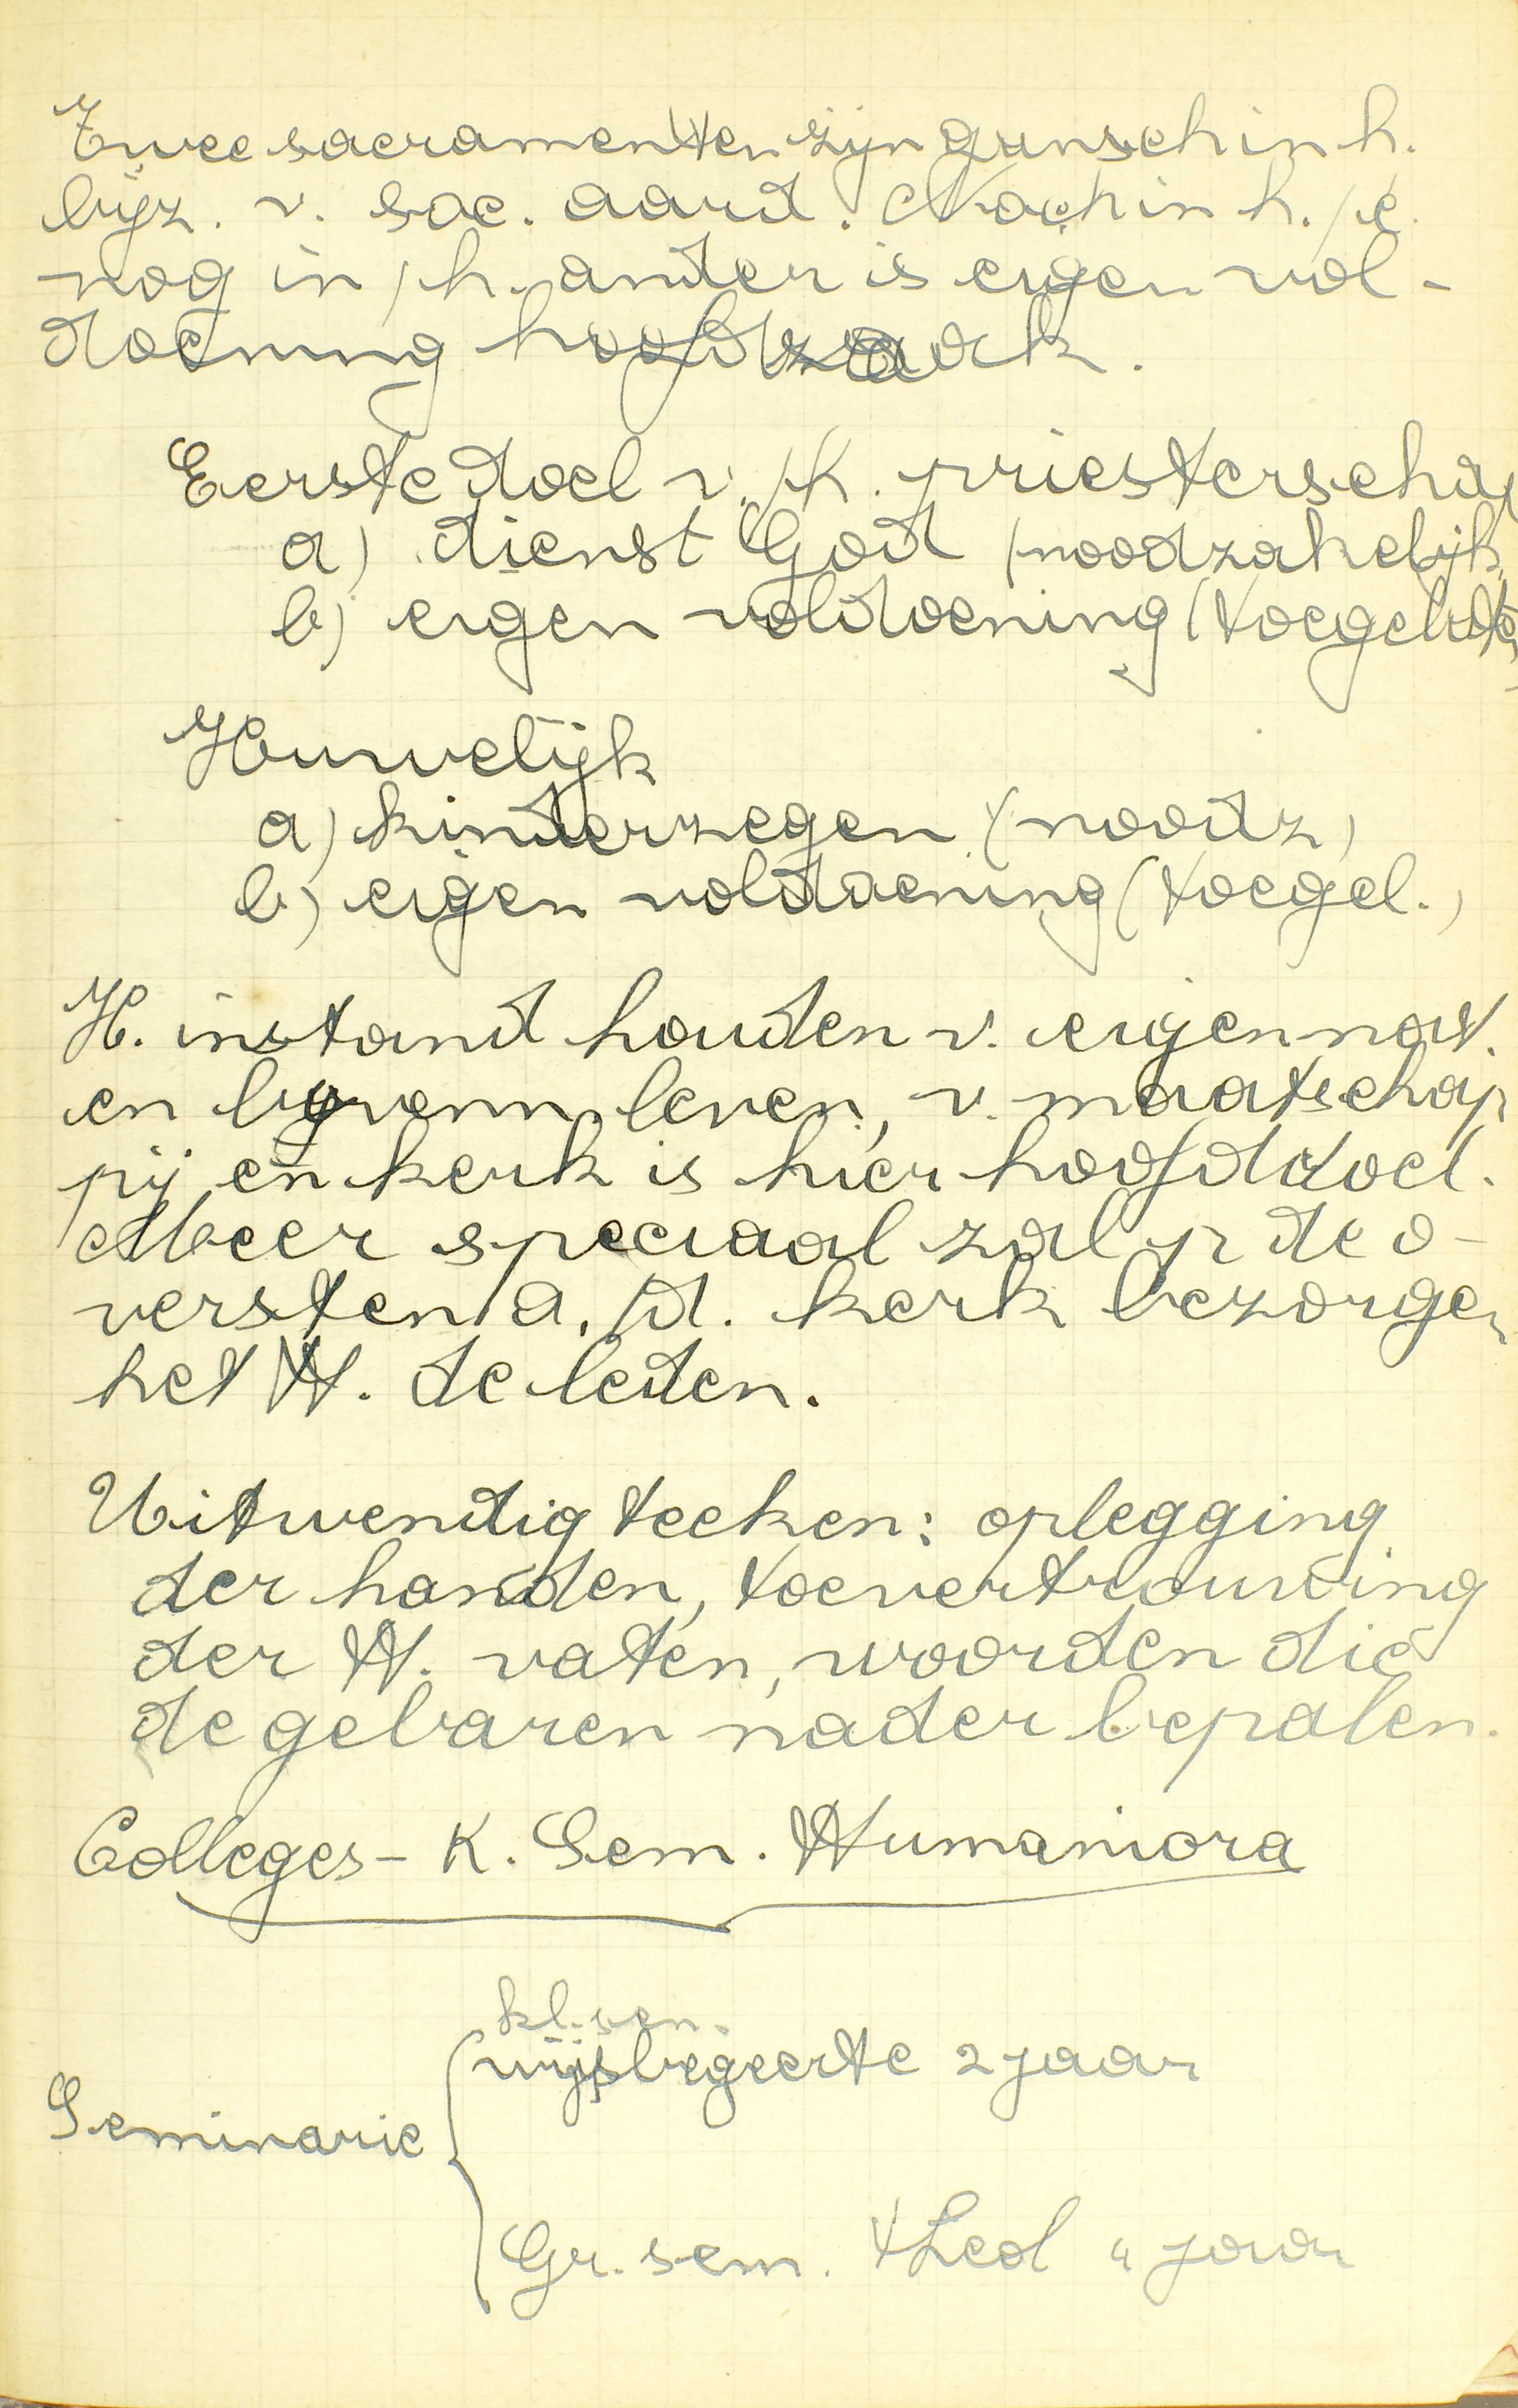 Twee sacramenten zijn gansch in h.
bijz. v. soc. aard. Noch in h. /e.
nog in /h. ander is eigen vol-
doening hoofdzaak.
Eerste doel v. /h. priesterschap
a) dienst God (noodzakelijk
b) eigen voldoening (toegelaten
Huwelijk
a) kinderzegen (noodz)
b) eigen voldoening (toegel.)
H. instand houden v. eigen nat.
en bovenn. leven, v. maatschap
pij en kerk is hier hoofddoel.
Meer speciaal zal p de o-
versten a. /d. kerk bezorgen
het H. de leden.
Uitwendig teeken: oplegging
der handen, toevertrouwing
der H. vaten, woorden die
de gebaren nader bepalen.
Colleges - K. Sem. Humaniora
kl. sem.
wijsbegeerte 2 jaar
Seminarie
Gr. sem. theol 4 jaar